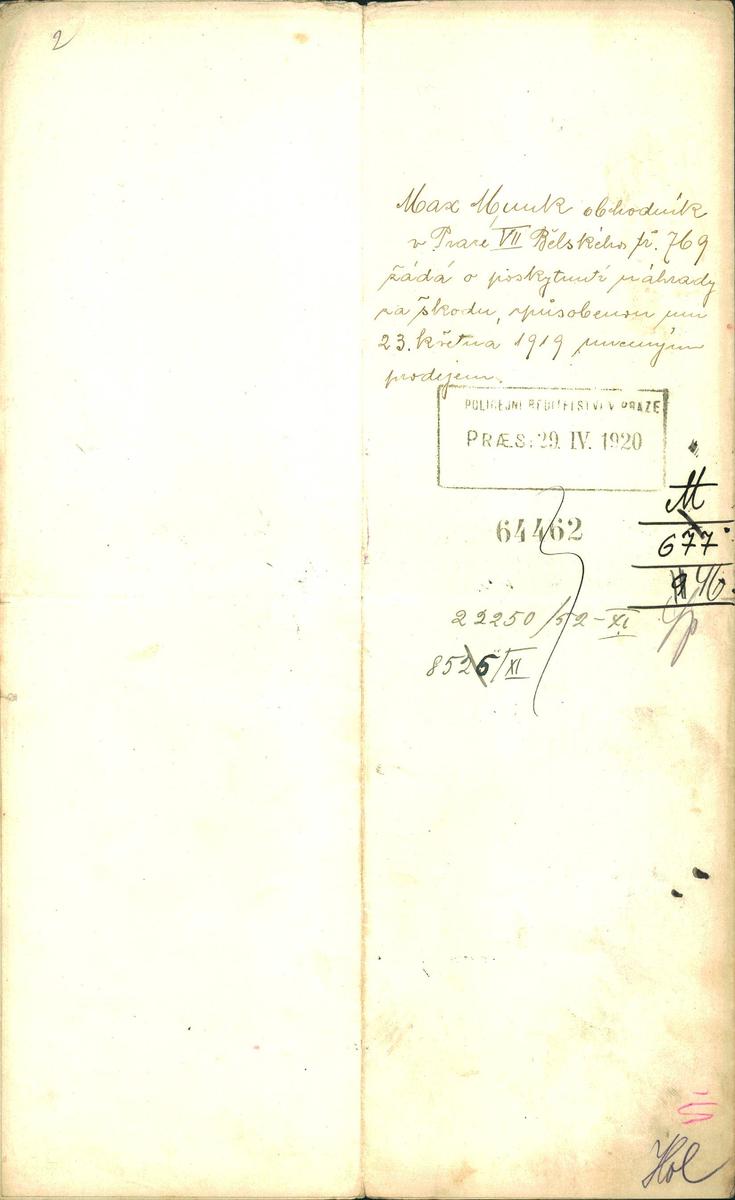 2
Max Munk obchodník
v Praze VII Bělského tř. 769
žádá o poskytnutí náhrady
za škodu, způsobenou mu
23. května 1919 nuceným
prodejem.
POLICEJNÍ ŘEDITELSTVÍ V PRAZE
PRÆS: 29. IV. 1920
64462
M
677
46.
22250/52-XI
8526/XI
Hol